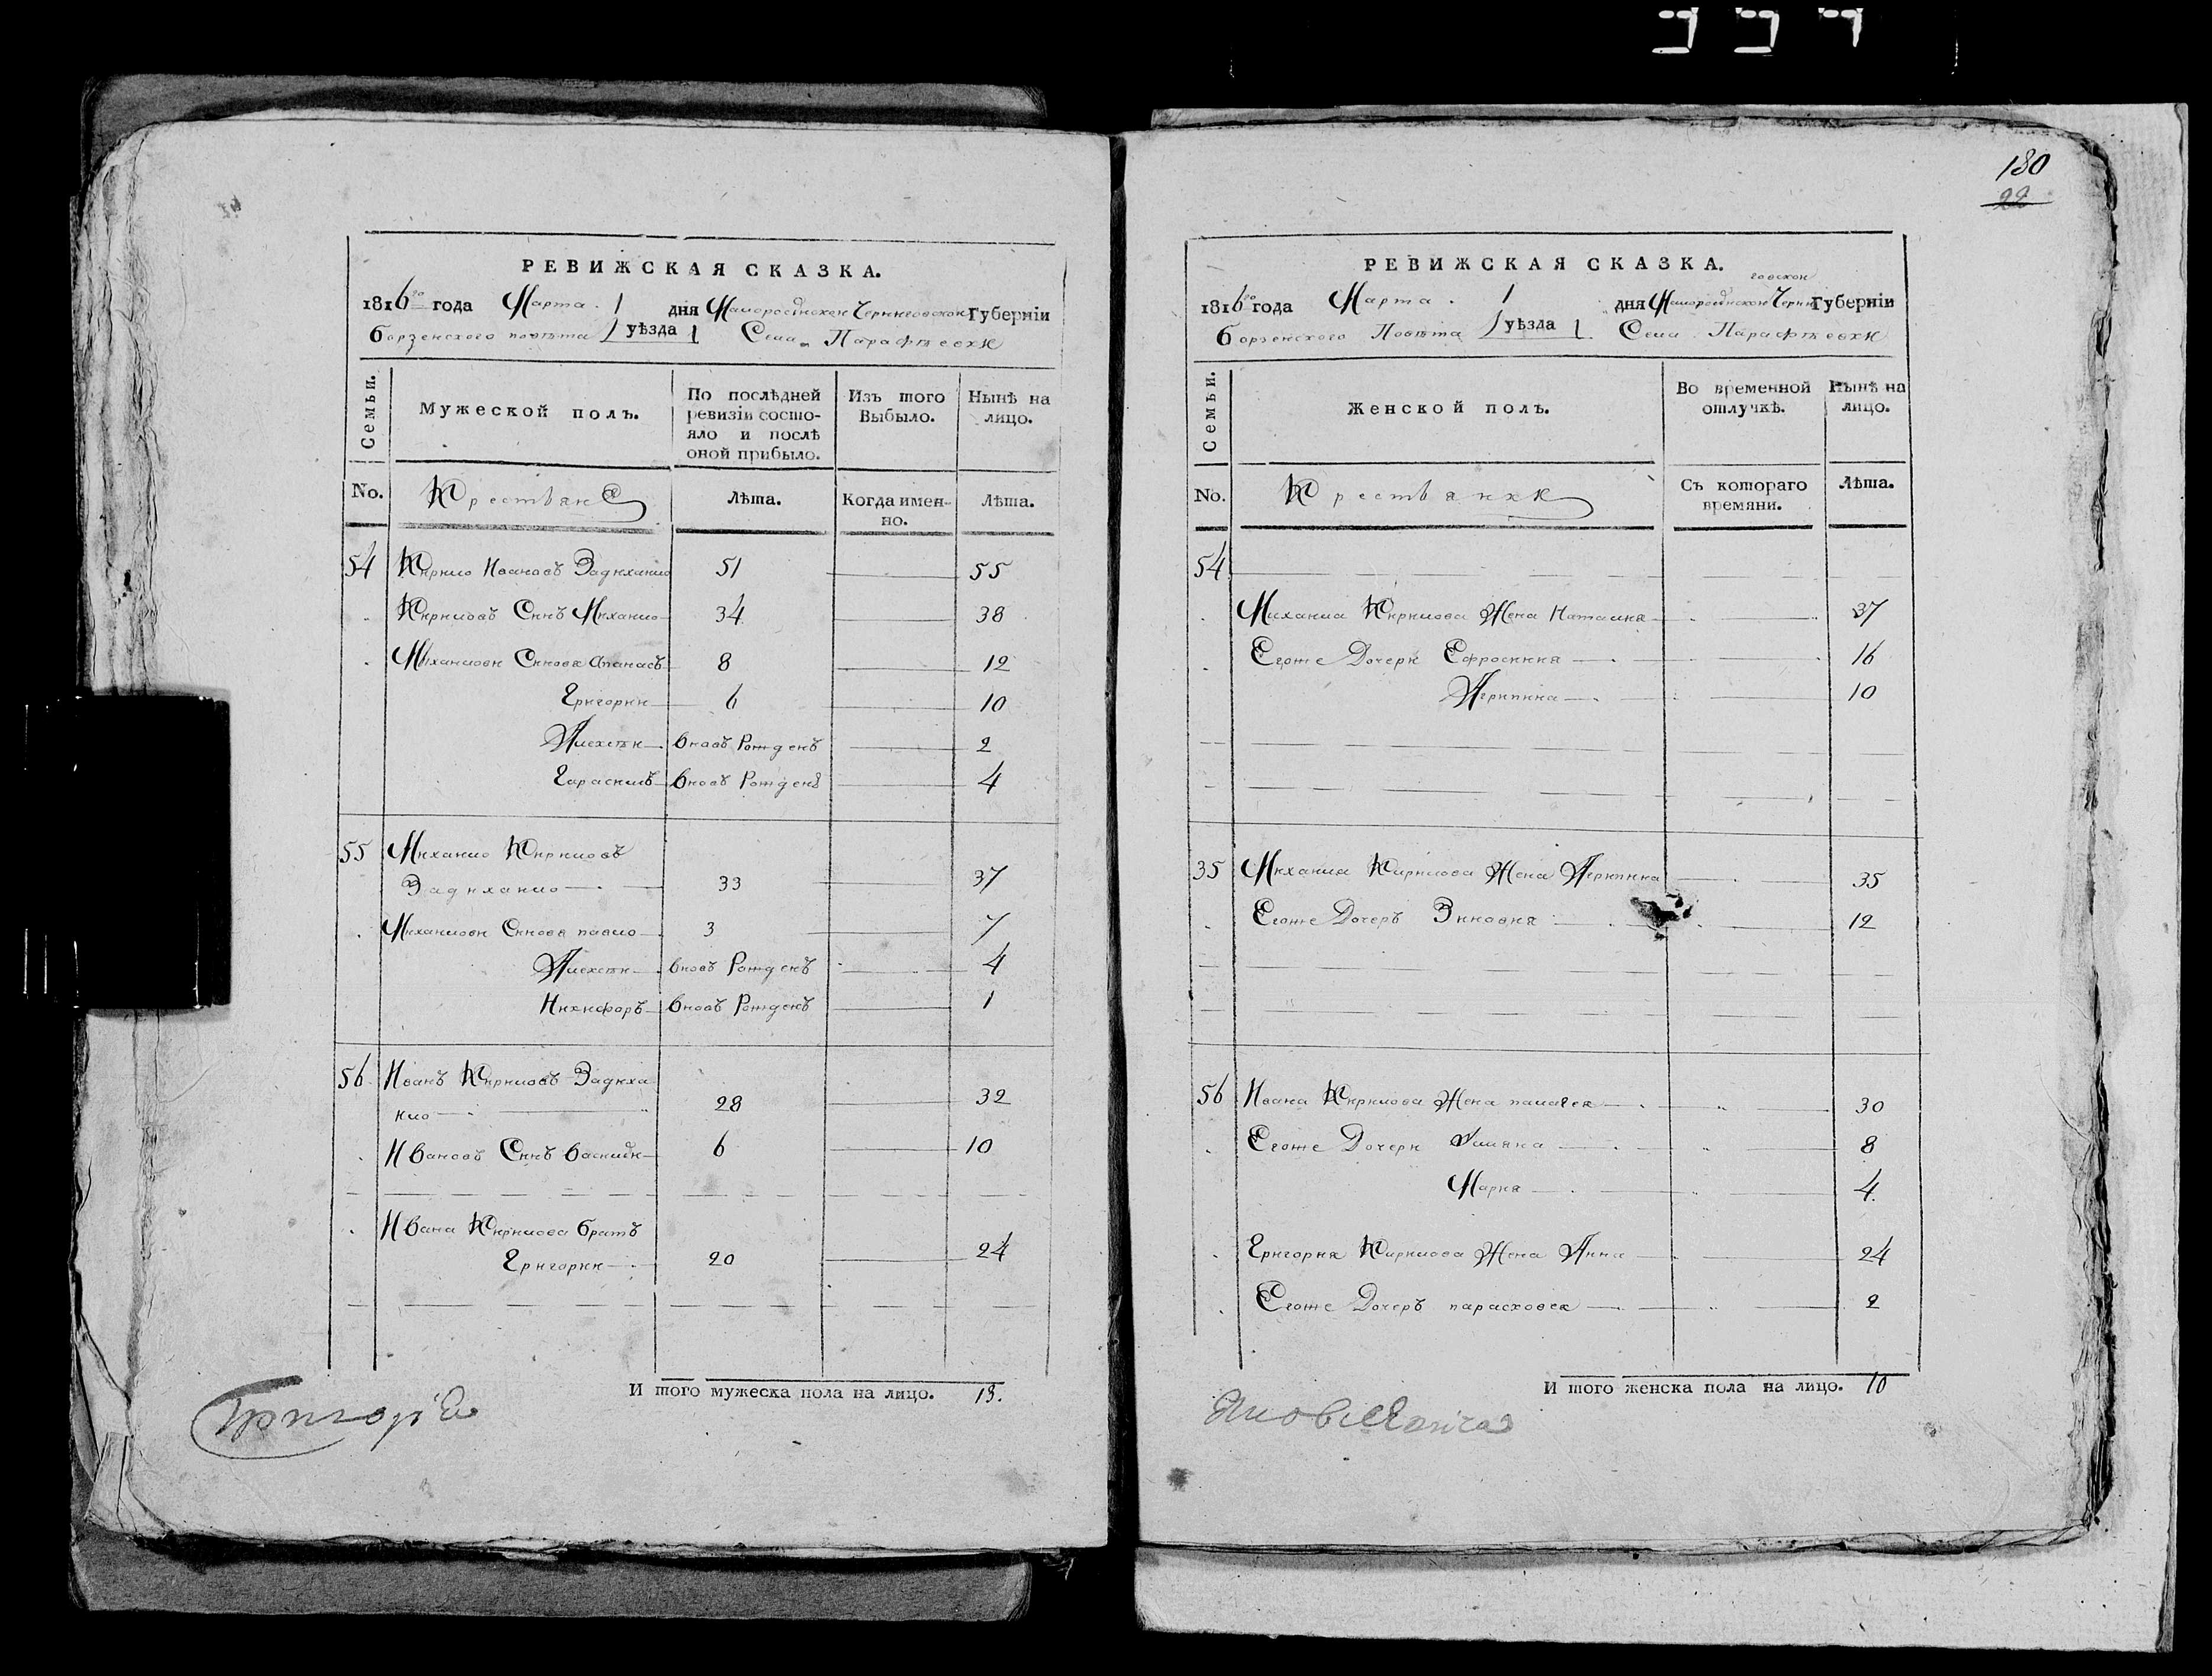 180
22
РЕВИЖСКАЯ СКАЗКА.
1816го года Марта 1 дня Малоросiйской Черниговской Губернiи
борзенского повѣта уѣзда Села Парафѣевки
Семьи.
Мужеской полъ.
По послѣдней ревизiи состо-
яло и послѣ
оной прибыло.
Изъ того
Выбыло.
Нынѣ на
лицо.
No.
Крестьяне
Лѣта.
Когда имен-
но.
Лѣта.
54 Кирило Ивановъ Задихайло 51 55
Кириловъ Синъ Михайло 34 38
Михайлови Синовя Апанасъ 8 12
Григорий 6 10
Алексѣй вновъ Рожденъ 2
Гарасимъ вновъ Рожденъ 4
55 Михайло Кириловъ
Задихайло 33 37
Михайлови Синовя павло 3 7
Алексѣй вновъ Рожденъ 4
Никифоръ вновъ Рожденъ 1
56 Иванъ Кириловъ Задиха
йло 28 32
Ивановъ Синъ василий 6 10
Ивана Кирилова братъ
Григорий 20 24
И того мужеска пола на лицо. 13.
Григорiй
РЕВИЖСКАЯ СКАЗКА.
1816го года Марта 1 дня Малоросiйской Черниговской Губернiи
борзенского Повѣта уѣзда Села Парафѣевки
Семьи.
Женской полъ.
Во временной
отлучкѣ.
Нынѣ на
лицо.
No.
Крестьянки
Съ котораго
времяни.
Лѣта.
54
Михайла Кирилова Жена Наталия 37
Егоже Дочери Ефросиния 16
Агрипина 10
35 Михайла Кирилова Жена Агрипина 35
Егоже Дочеръ Зиновия 12
56 Ивана Кирилова Жена палагея 30
Егоже Дочери Улияна 8
Мария 4
Григория Кирилова Жена Анна 24
Егоже Дочеръ парасковея 2
И того женска пола на лицо. 10